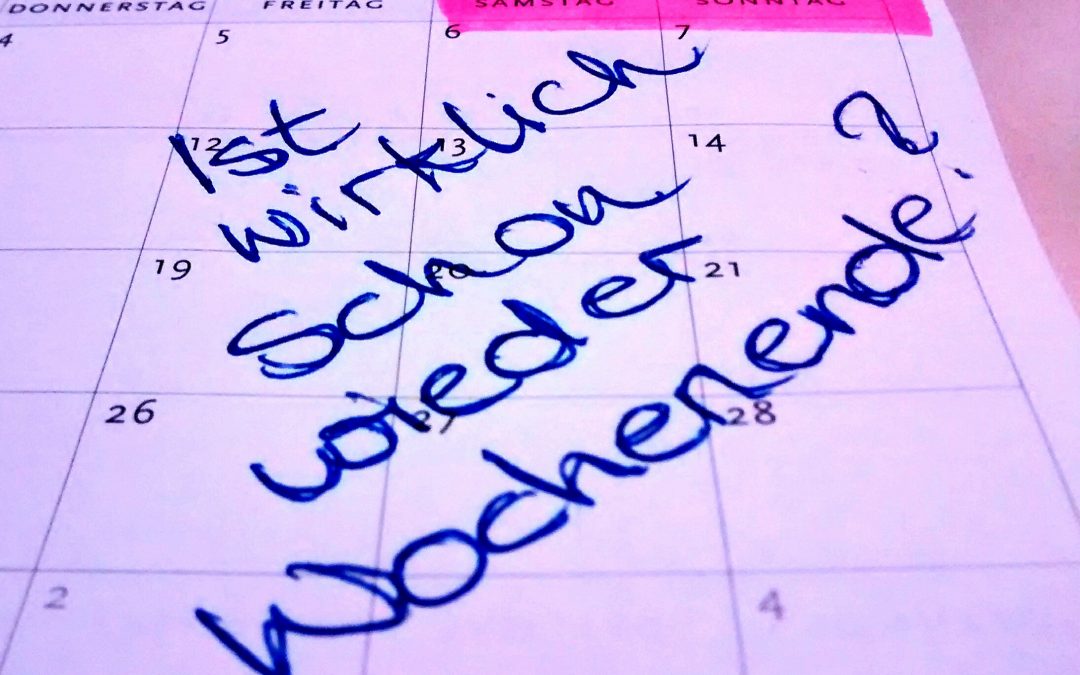 DONNERSTAG FREITAG SAMSTAG SONNTAG
4 5 6 7
12 13 14
19 20 21
26 27 28
2 4
Ist
wirklich
schon
wieder
Wochenende?